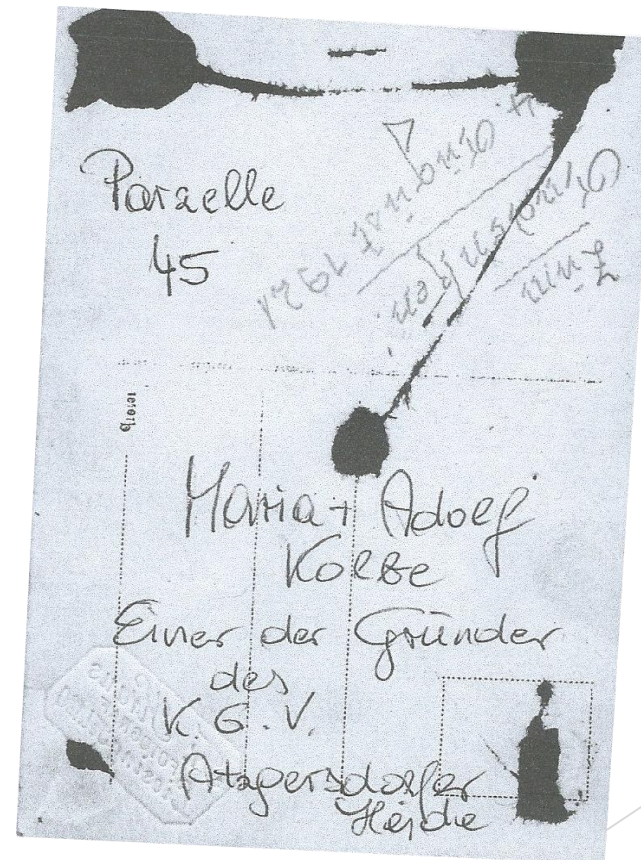 Parzelle
45
Zum
4. August 1921
Maria + Adolf
Kolbe
Einer der Gründer
des
K. G. V.
Atzgersdorfer
Heide